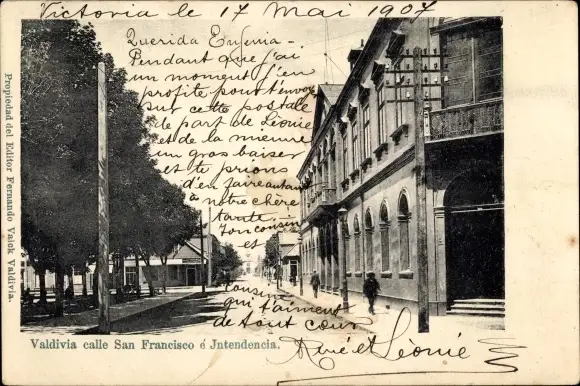 Victoria le 17 Mai 1907
Querida Eufemia -
Pendant que j'ai
un moment j'en
profite pour t'envoyer
sur cette postale
de part de Léonie
et de la mienne
un gros baiser
et te prions
d'en faire autant
à notre chère
tante
Ton cousin
et
cousine
qui t'aiment
de tout cœur
René et Léonie
Valdivia calle San Francisco é Jntendencia.
Propiedad del Editor Fernando Valck Valdivia.